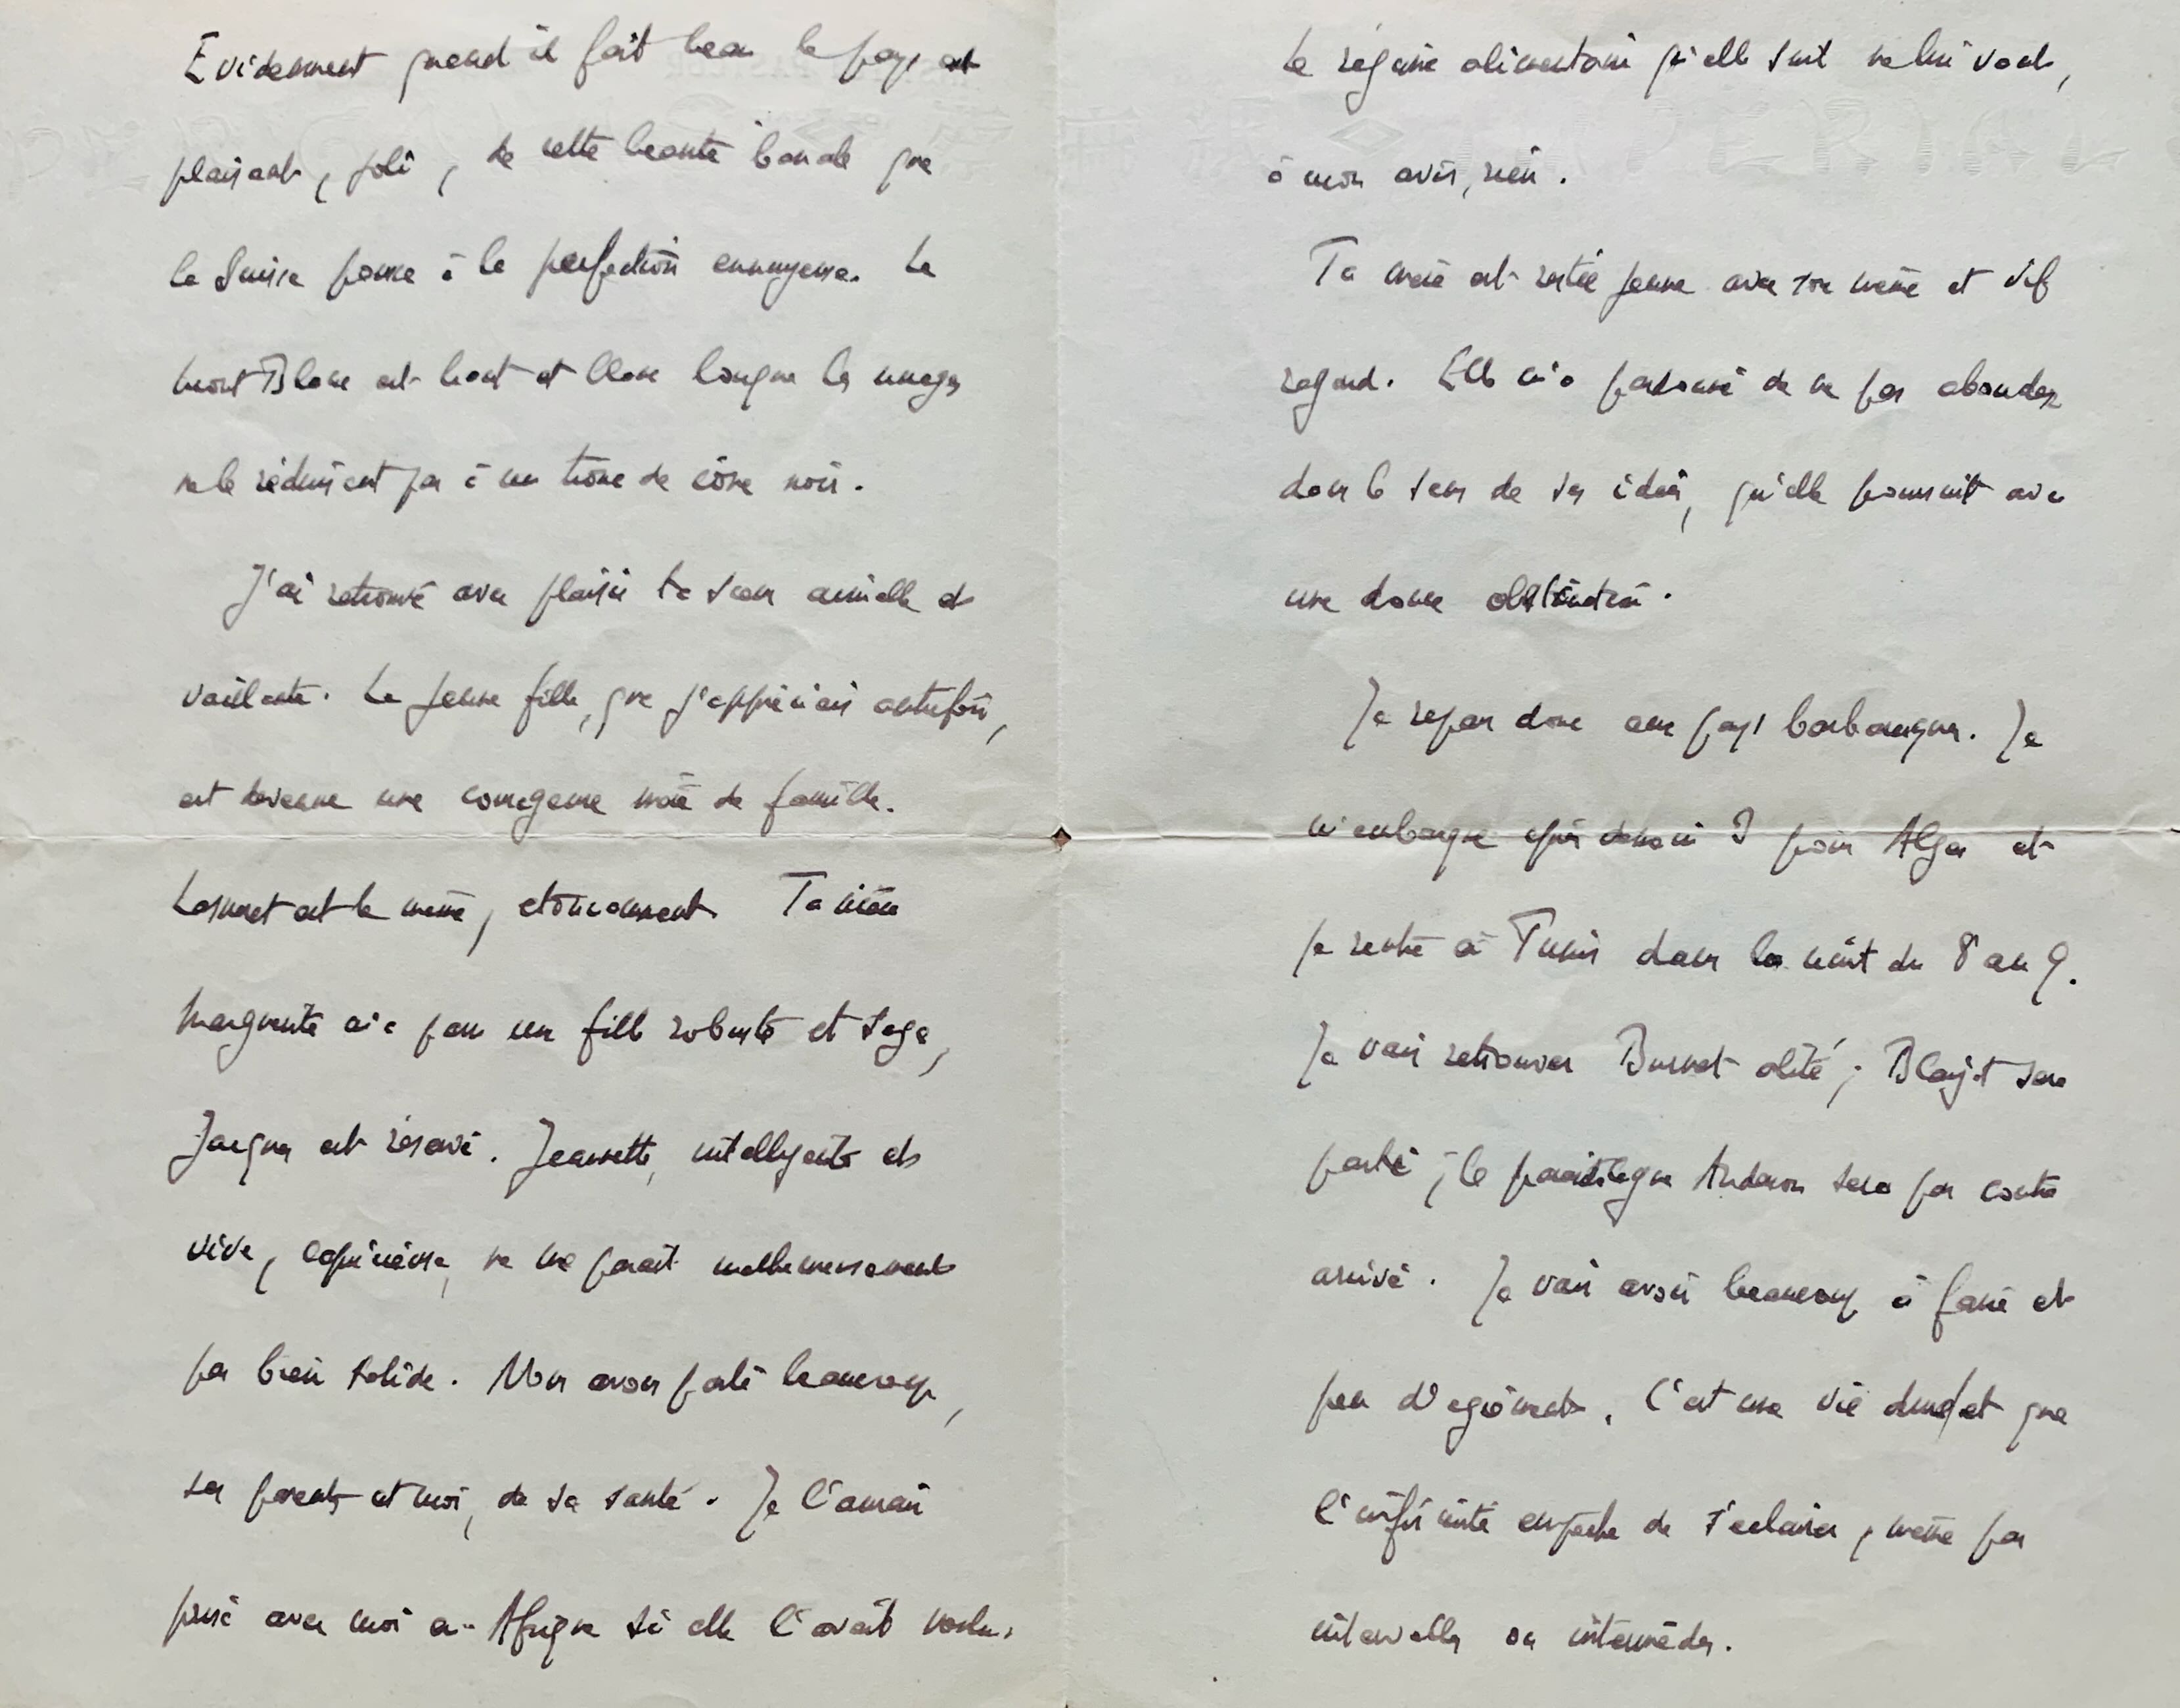 Evidemment quand il fait beau le pays est
plaisant, joli, de cette beauté banale que
la Suisse pousse à la perfection ennuyeuse. Le
mont Blanc est haut et blanc lorsque les nuages
ne le réduisent pas à un tronc de cône noir.
J'ai retrouvé avec plaisir ta sœur amicale et
vaillante. La jeune fille, que j'appréciais autrefois,
est devenue une courageuse mère de famille.
Lormet est le même, étonnamment. Ta nièce
Marguerite m'a paru une fille robuste et sage,
Jacques est réservé. Jeannette, intelligente et
vive, capricieuse, ne me parait malheureusement
pas bien solide. Nous avons parlé beaucoup,
ses parents et moi, de sa santé. Je l'aurais
prise avec moi en Afrique si elle l'avait voulu.
Le régime alimentaire qu'elle suit ne lui vaut,
à mon avis, rien.
Ta mère est restée jeune avec son même et vif
regard. Elle m'a pardonné de ne pas abonder
dans le sens de ses idées, qu'elle poursuit avec
une douce obstination.
Je repars donc aux pays barbaresques. Je
m'embarque après demain 3 pour Alger et
je rentre à Tunis dans la nuit du 8 au 9.
Je vais retrouver Burnet alité; Blaizot sera
parti; le parasitologue Anderson sera par contre
arrivé. Je vais avoir beaucoup à faire et
peu d'agrément. C'est une vie dure et que
l'infirmité empêche de s'éclairer, même par
intervalles ou intermèdes.